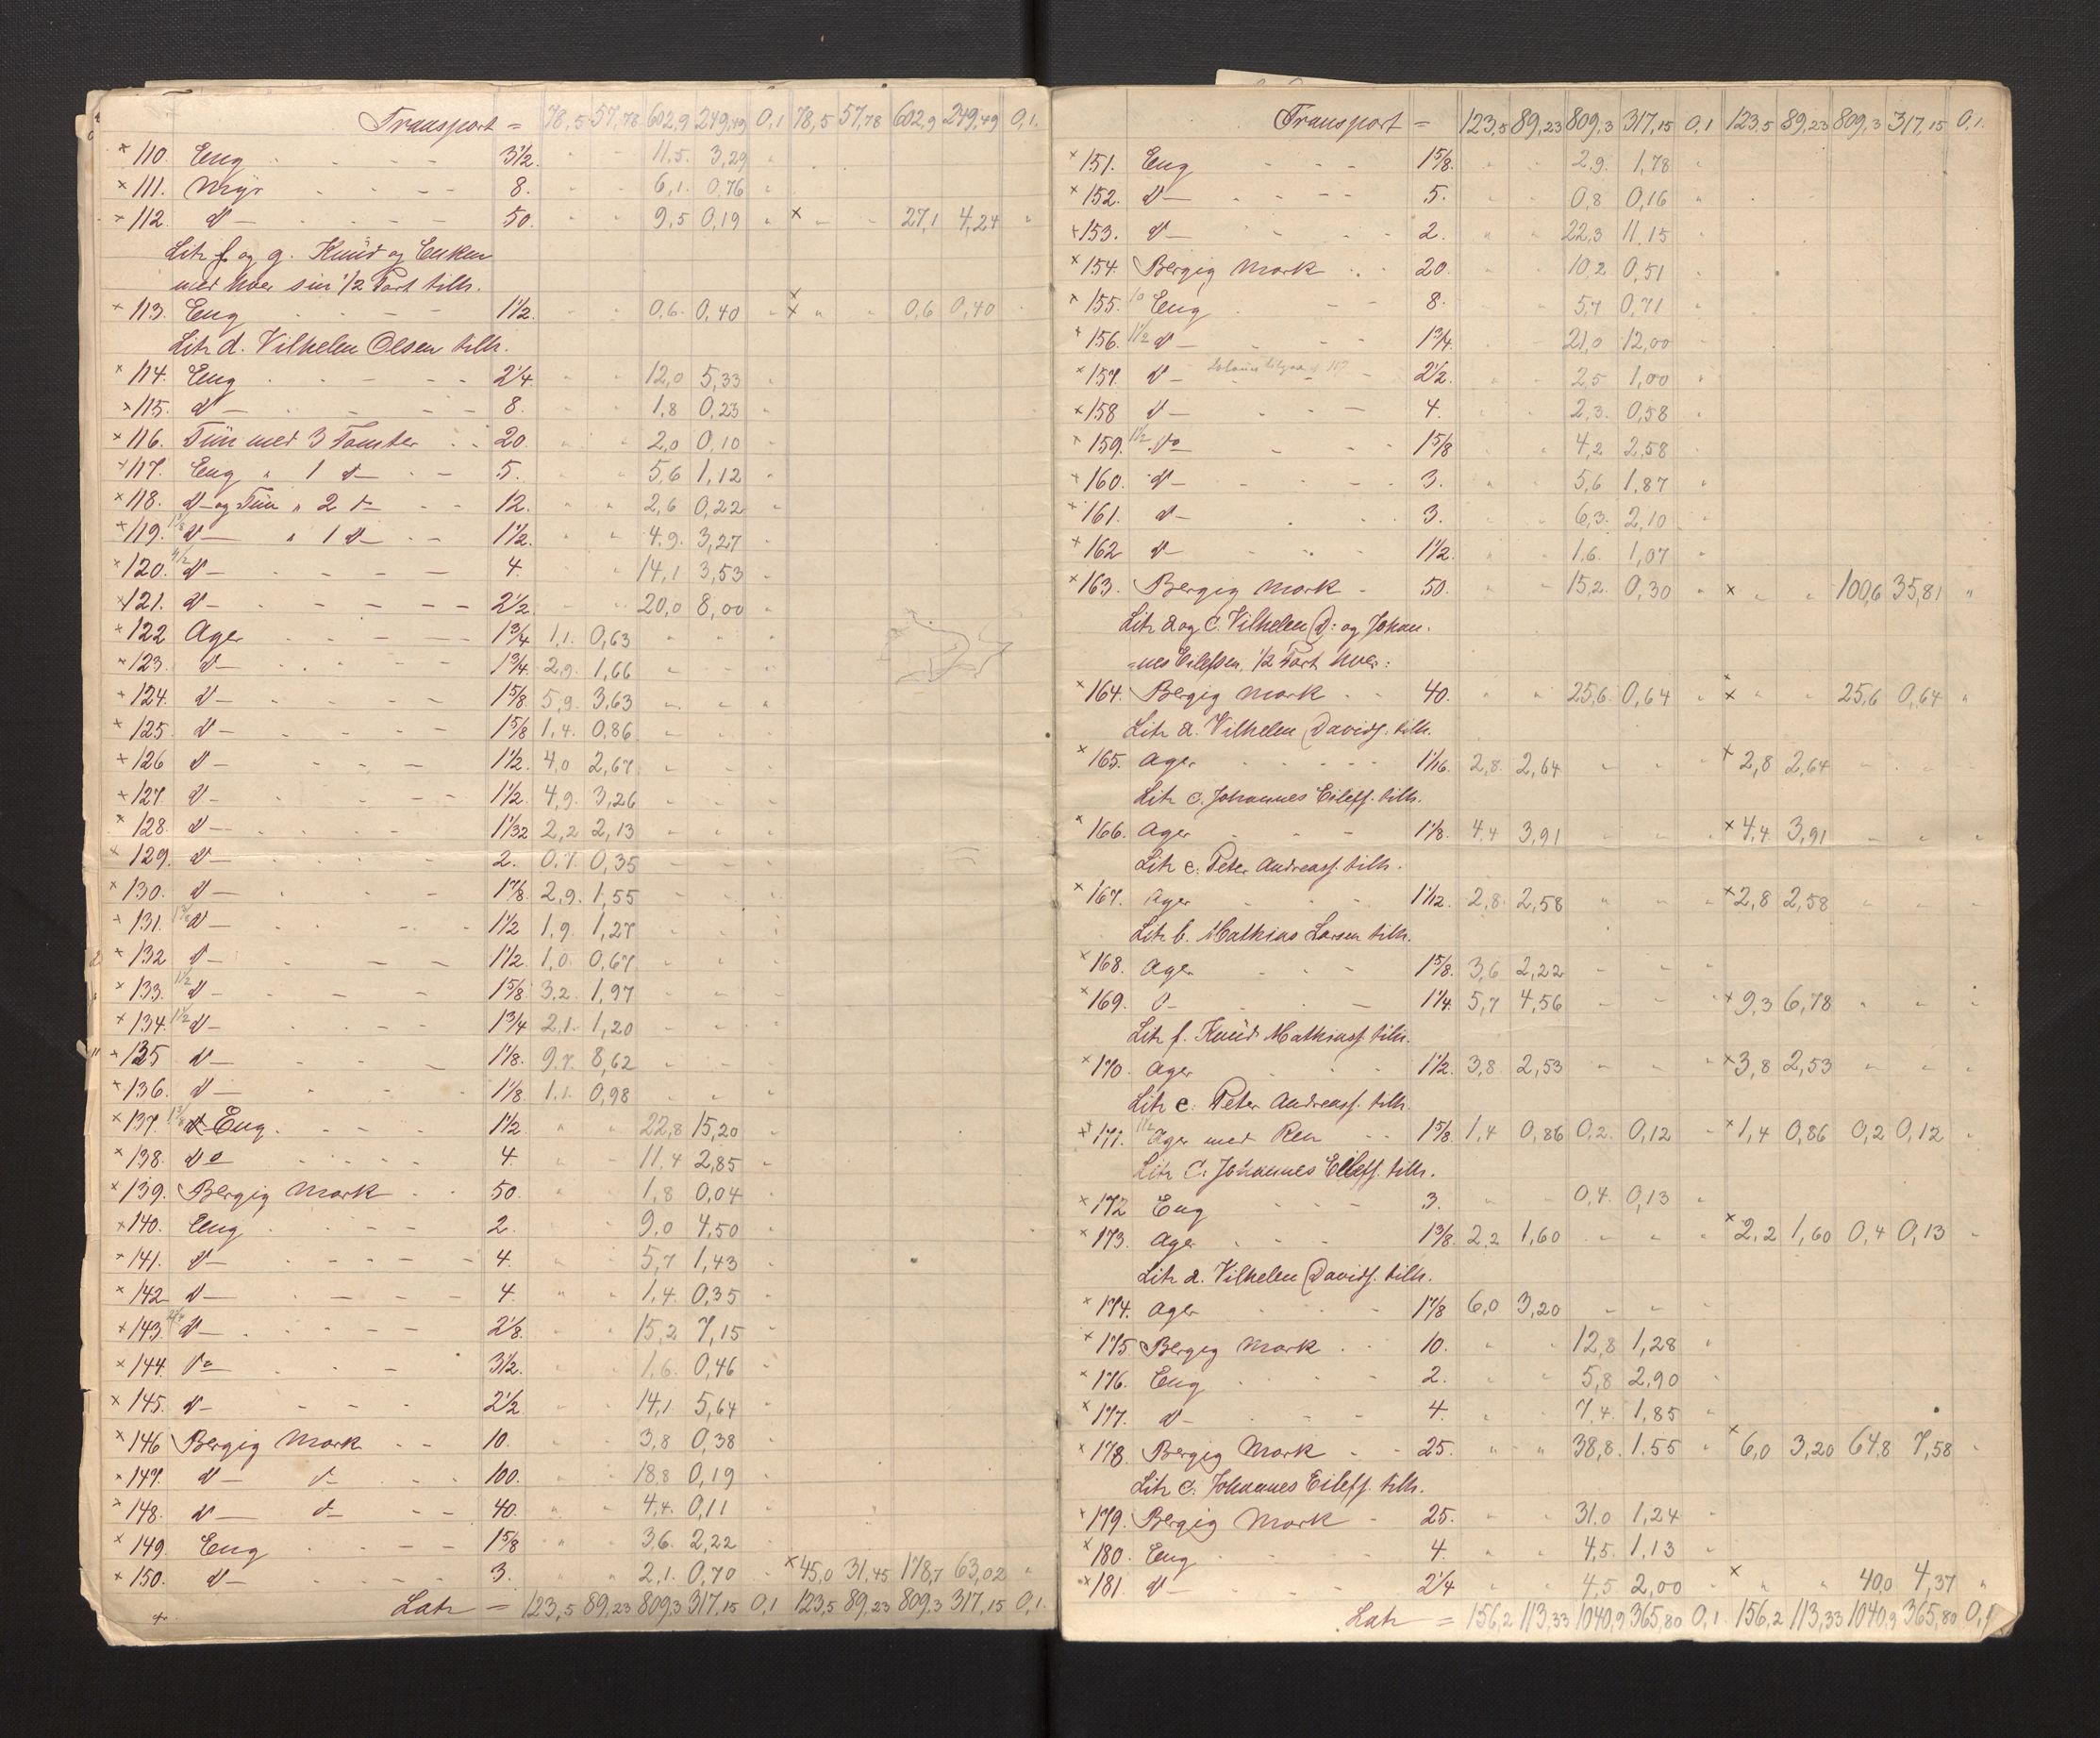 Transport = 78,5 57,78 602,9 249,49 0,1 78,5 57,78 602,9 249,49 0,1.
× 110. Eng - - - - 3 1/2. " " 11,5. 3,29 "
× 111. Myr - - - - 8. " " 6,1. 0,76 "
× 112. d - - - - 50. " " 9,5 0,19 " × " " 27,1 4,24 "
Litr f og g. Knud og Enken
med hver sin 1/2 Part tilh.
× 113. Eng - - - - 1 1/2. " " 0,6. 0,40 " × " " 0,6 0,40
Litr d. Vilhelm Olsen tilh.
× 114. Eng - - - - 2 1/4. " " 12,0 5,33 "
× 115. d - - - - 8. " " 1,8 0,23 "
× 116. Tun med 3 Tomter - - 20 " " 2,0 0,10 "
× 117. Eng " 1 d - - 5. " " 5,6 1,12 "
× 118. d og Tun " 2 d - - 12. " " 2,6 0,22 "
× 119. d " 1 d - - 1 1/2. " " 4,9. 3,27 "
× 120. d - - - - 4. " " 14,1 3,53 "
× 121. d - - - - 2 1/2. " " 20,0 8,00 "
× 122 Ager - - - - 1 3/4 1,1. 0,63 " " "
× 123. d - - - - 1 3/4. 2,9. 1,66 " " "
× 124. d - - - - 1 5/8. 5,9. 3,63 " " "
× 125. d - - - - 1 5/8 1,4. 0,86 " " "
× 126 d - - - 1 1/2. 4,0 2,67 " " "
× 127. d - - - - 1 1/2. 4,9. 3,26 " " "
× 128. d - - - - 1 1/32 2,2 2,13 " " "
× 129. d - - - - 2. 0,7. 0,35 " " "
× 130. d - - - 1 7/8. 2,9. 1,55 " " "
× 131. d - - - - 1 1/2 1,9. 1,27 " " "
× 132 d - - - 1 1/2. 1,0. 0,67 " " "
× 133. 1 1/2 d - - - 1 5/8 3,2. 1,97 " " "
× 134. 1 1/2 d - - - 1 3/4 2,1. 1,20 " " "
× 135 d - - - 1 1/8. 9,7. 8,62 " " "
× 136. d - - - 1 1/8 1,1. 0,98 " " "
× 137. Eng. - - - 1 1/2 " " 22,8 15,20 "
× 138. do - - - - 4. " " 11,4 2,85 "
× 139. Bergig Mark - - 50. " " 1,8 0,04 "
× 140. Eng - - - - 2. " " 9,0 4,50 "
× 141. d - - - - 4. " " 5,7 1,43 "
× 142 d - - - - 4 " " 1,4. 0,35 "
× 143. d - - - - 2 1/8. " " 15,2 7,15 "
× 144. do - - - 3 1/2. " " 1,6. 0,46 "
× 145. d - - - 2 1/2 " " 14,1 5,64 "
× 146 Bergig Mark - - 10. " " 3,8 0,38 "
× 147. d d - - 100. " " 18,8 0,19 "
× 148. d d - - 40. " " 4,4. 0,11 "
× 149. Eng - - - - 1 5/8 " " 3,6. 2,22 "
× 150. d - - - - 3. " " 2,1. 0,70 " × 45,0 31,45 178,7 63,02 "
Latr = 123,5 89,23 809,3 317,15 0,1 123,5 89,23 809,3 317,15 0,1.
Transport = 123,5 89,23 809,3 317,15 0,1 123,5 89,23 809,3 317,15 0,1.
× 151. Eng - - - 1 5/8. " " 2,9. 1,78 "
× 152. d - - - - 5. " " 0,8 0,16 "
× 153. d - - - 2. " " 22,3 11,15 "
× 154. Bergig Mark - - 20. " " 10,2 0,51 "
× 155. 10 Eng - - 8. " " 5,7 0,71 "
× 156. 1 1/2 d - - - 1 3/4. " " 21,0 12,00 "
× 157. d - - 2 1/2. " " 2,5 1,00 "
× 158 d - - - 4. " " 2,3. 0,58 "
× 159. 1 1/2 do - - - 1 5/8 " " 4,2 2,58 "
× 160. d - - - - 3. " " 5,6 1,87 "
× 161. d - - - 3. " " 6,3. 2,10 "
× 162 d - - - 1 1/2. " " 1,6. 1,07 "
× 163. Bergig Mark - 50. " " 15,2. 0,30 " × " " 100,6 35,81 "
Litr d og c. Vilhelm D: og Johan-
=nes Eilefsen, 1/2 Part hver:
× 164. Bergig Mark - - 40. " " 25,6. 0,64 " × " " 25,6 0,64 "
Litr d. Vilhelm Davids. tilh.
× 165. Ager - - - - 1 1/16. 2,8. 2,64 " " " × 2,8 2,64 " "
Litr c. Johannes Eilefs. tilh.
× 166. Ager - - - 1 1/8. 4,4 3,91 " " " × 4,4 3,91 " " "
Litr e. Peter Andreass. tilh.
× 167. Ager - - - 1 1/12. 2,8. 2,58 " " " × 2,8 2,58 " " "
Litr b. Mathias Larsen tilh.
× 168. Ager - - - 1 5/8. 3,6 2,22 " " "
× 169. d - - - 1 1/4. 5,7 4,56 " " " × 9,3 6,78 " " "
Litr f. Knud Mathiass. tilh.
× 170. Ager - - - 1 1/2. 3,8. 2,53 " " " × 3,8 2,53 " " "
Litr e. Peter Andreass. tilh.
× 171. 1 1/2 Ager med Ren - - 1 5/8. 1,4 0,86 0,2. 0,12 " × 1,4 0,86 0,2 0,12 "
Litr C. Johannes Eilefs. tilh.
× 172 Eng - - - 3. " " 0,4. 0,13 "
× 173. Ager - - - 1 3/8. 2,2 1,60 " " " × 2,2 1,60 0,4 0,13 "
Litr d. Vilhelm Davids. tilh.
× 174. Ager - - - 1 7/8 6,0 3,20 " " "
× 175 Bergig Mark - - 10. " " 12,8 1,28 "
× 176. Eng - - - - 2. " " 5,8 2,90 "
× 177. d - - - 4. " " 7,4. 1,85 "
× 178. Bergig Mark - - 25. " " 38,8. 1.55 " × 6,0 3,20 64,8 7,58 "
Litr C. Johannes Eilefs. tilh.
× 179. Bergig Mark - 25. " " 31,0 1,24 "
× 180. Eng - - - - 4. " " 4,5. 1,13 "
× 181. d - - - 2 1/4 " " 4,5 2,00 " × " " 40,0 4,37 "
Latr = 156,2 113,33 1040,9 365,80 0,1 156,2 113,33 1040,9 365,80 0,1